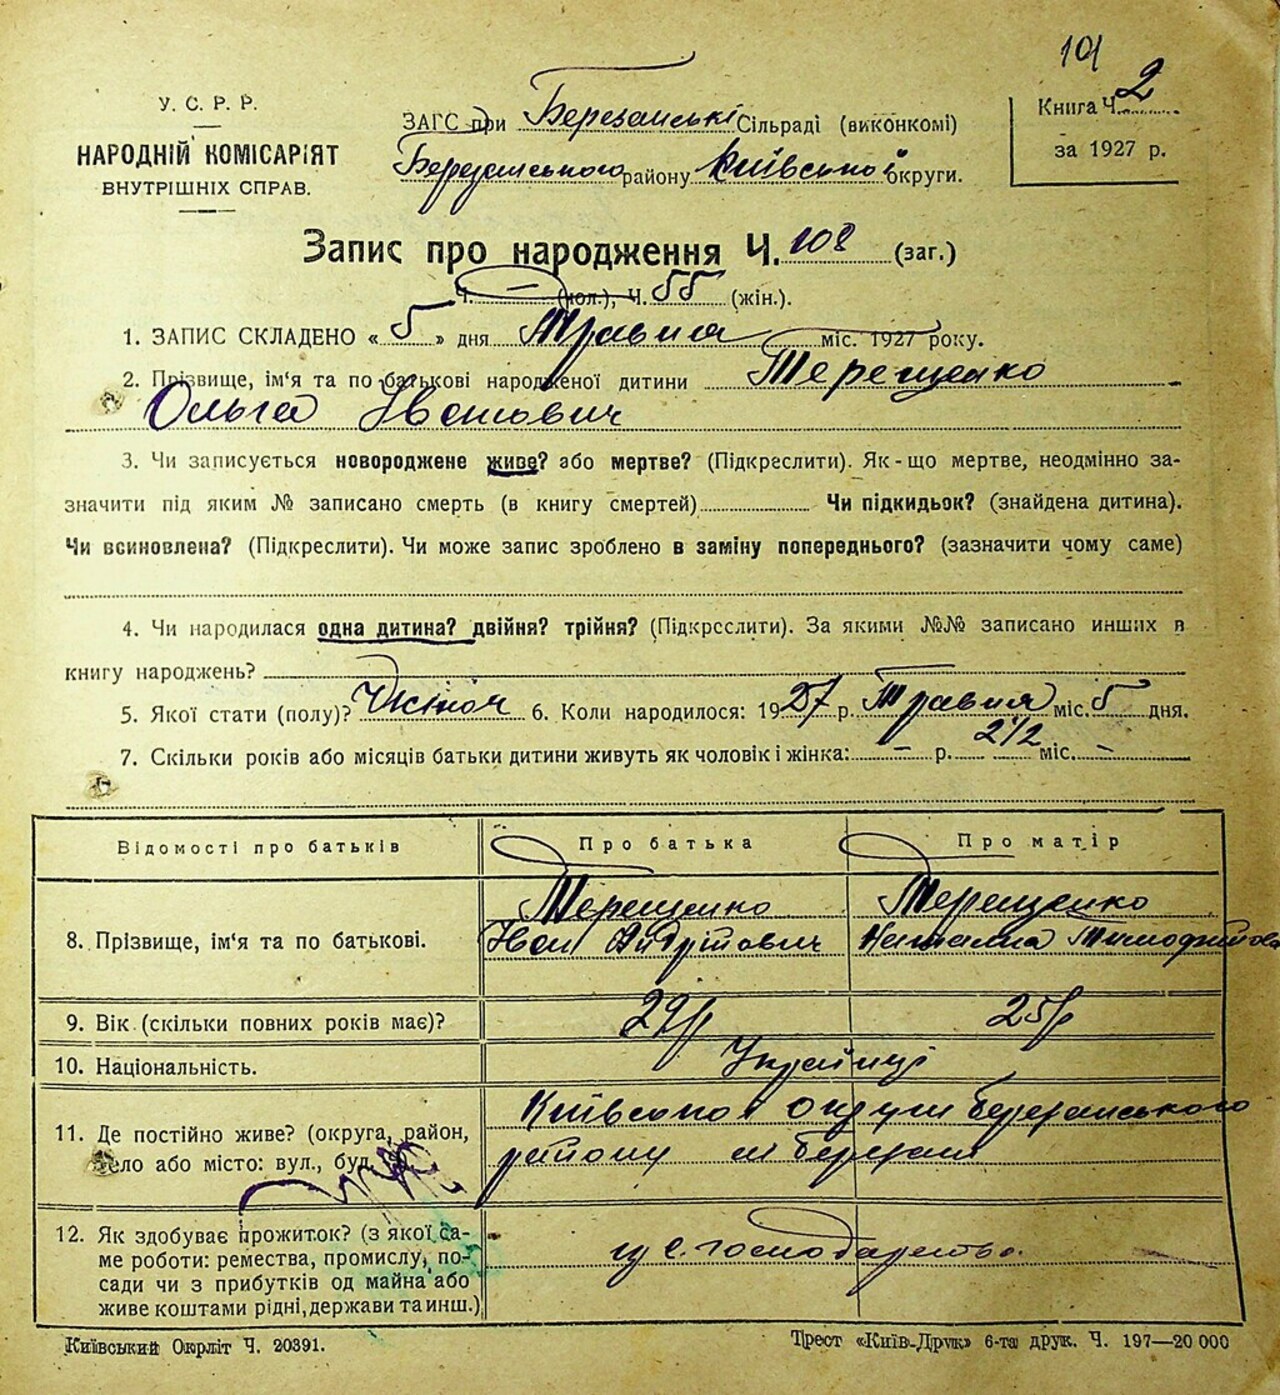 101
У. С. Р. Р.
НАРОДНІЙ КОМІСАРІЯТ
ВНУТРІШНІХ СПРАВ.
ЗАГС при Березанські Сільраді (виконкомі)
Березанського району Київської округи.
Книга Ч. 2
за 1927 р.
Запис про народження Ч. 108 (заг.)
Ч. — (чол.), Ч. 55 (жін.).
1. ЗАПИС СКЛАДЕНО « 5 » дня Травня міс. 1927 року.
2. Прізвище, ім'я та по батькові народженої дитини Терещенко
Ольга Іванович
3. Чи записується новороджене живе? або мертве? (Підкреслити). Як-що мертве, неодмінно за-
значити під яким № записано смерть (в книгу смертей) Чи підкидьок? (знайдена дитина).
Чи всиновлена? (Підкреслити). Чи може запис зроблено в заміну попереднього? (зазначити чому саме)
4. Чи народилася одна дитина? двійня? трійня? (Підкреслити). За якими №№ записано инших в
книгу народжень?
5. Якої стати (полу)? Жіноч 6. Коли народилося: 1927 р. Травня міс. 5 дня.
7. Скільки років або місяців батьки дитини живуть як чоловік і жінка: — р. 2 1/2 міс. —
Відомості про батьків Про батька Про матір
8. Прізвище, ім'я та по батькові. Терещенко Терещенко
Іван Андрійович Наталка Тимофійова
9. Вік (скільки повних років має)? 29 р 25 р
10. Національність. Українці
11. Де постійно живе? (округа, район,
село або місто: вул., буд.
Київської округи Березанського
району м Березань
12. Як здобуває прожиток? (з якої са-
ме роботи: ремества, промислу, по-
сади чи з прибутків од майна або
живе коштами рідні, держави та инш.)
з с. господарство.
Київський Окрліт Ч. 20391.
Трест «Київ-Друк» 6-та друк. Ч. 197—20 000